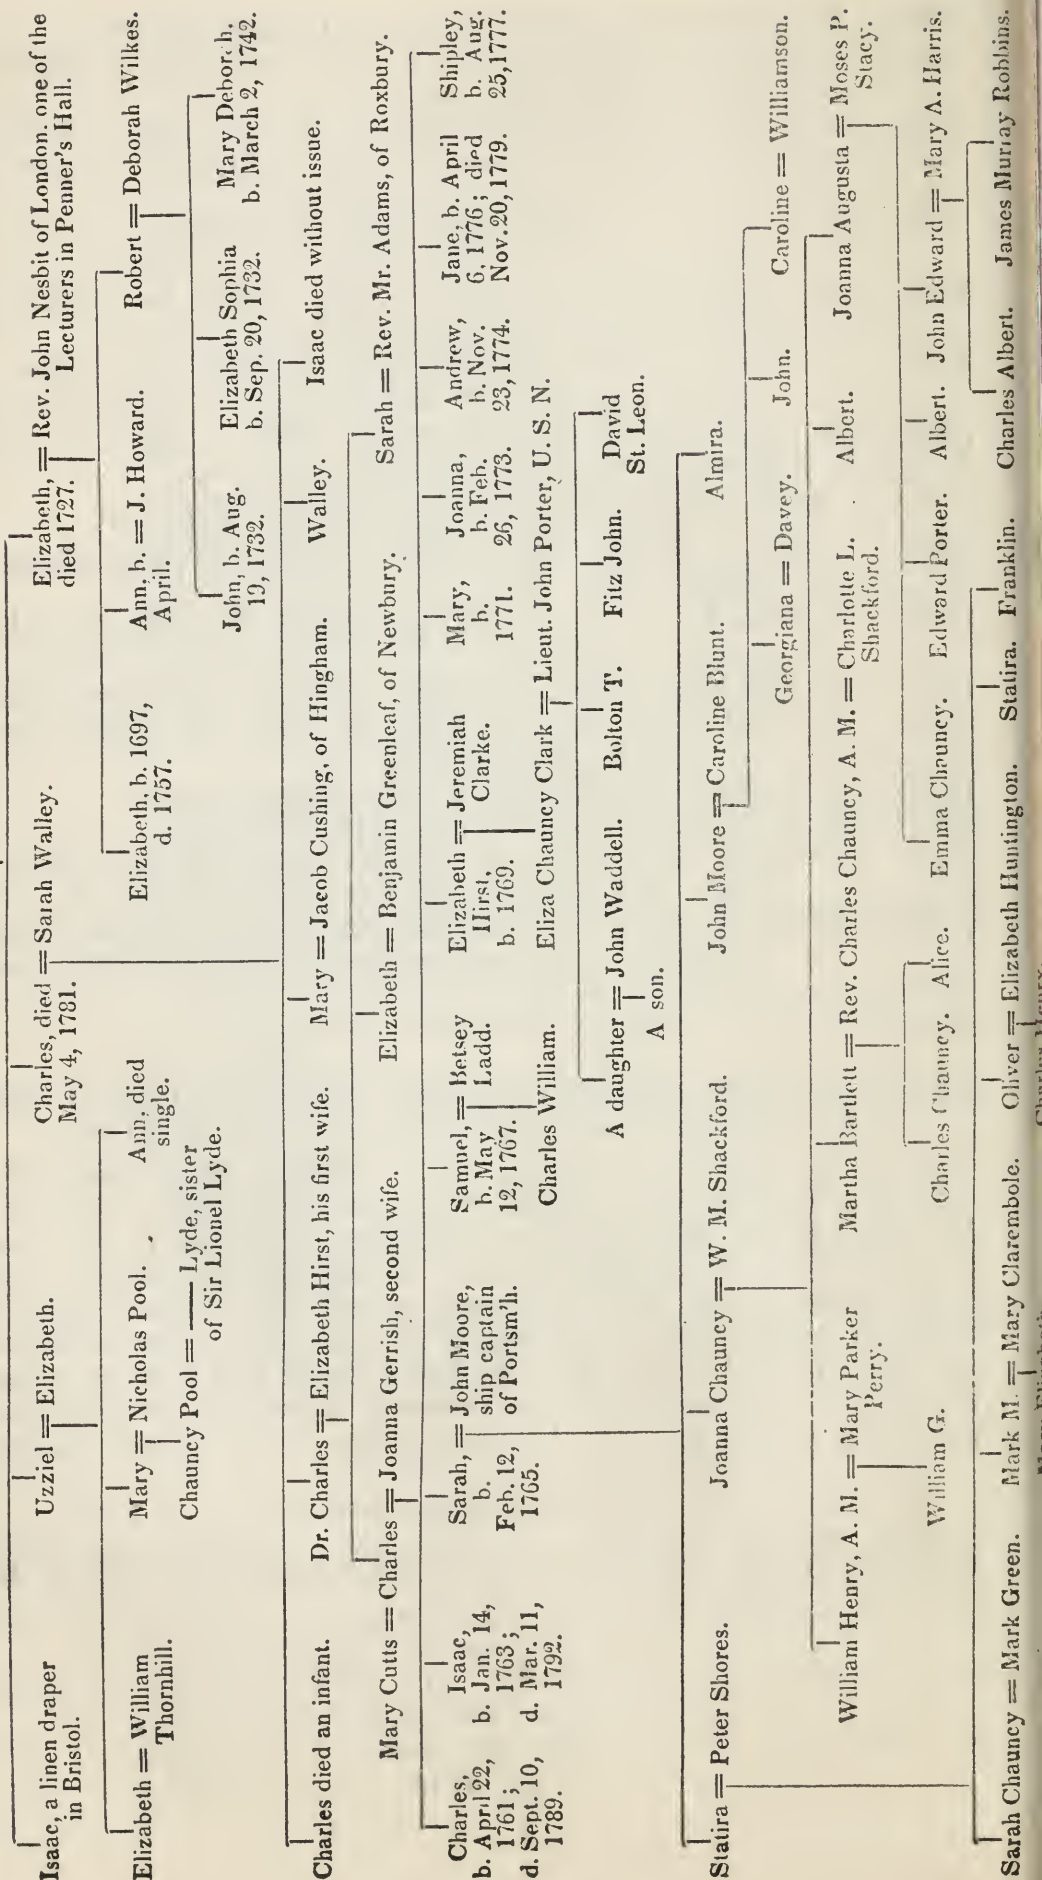 Isaac, a linen draper
in Bristol.
Uzziel = Elizabeth.
Charles, died = Sarah Walley.
May 4, 1781.
Elizabeth, = Rev. John Nesbit of London, one of the
died 1727. Lecturers in Penner's Hall.
Elizabeth = William
Thornhill.
Mary = Nicholas Pool.
Ann, died
single.
Chauncy Pool = —— Lyde, sister
of Sir Lionel Lyde.
Elizabeth, b. 1697,
d. 1757.
Ann, b. = J. Howard.
April.
Robert = Deborah Wilkes.
John, b. Aug.
19, 1732.
Elizabeth Sophia
b. Sep. 20, 1732.
Mary Deborah.
b. March 2, 1742.
Charles died an infant.
Dr. Charles = Elizabeth Hirst, his first wife.
Mary = Jacob Cushing, of Hingham.
Walley.
Isaac died without issue.
Mary Cutts = Charles = Joanna Gerrish, second wife.
Elizabeth = Benjamin Greenleaf, of Newbury.
Sarah = Rev. Mr. Adams, of Roxbury.
Charles,
b. April 22,
1761;
d. Sept. 10,
1789.
Isaac,
b. Jan. 14,
1763;
d. Mar. 11,
1792.
Sarah, = John Moore,
b. ship captain
Feb. 12, of Portsm'h.
1765.
Samuel, = Betsey
b. May Ladd.
12, 1767.
Charles William.
Elizabeth = Jeremiah
Hirst, Clarke.
b. 1769.
Mary,
b.
1771.
Joanna,
b. Feb.
26, 1773.
Andrew,
b. Nov.
23, 1774.
Jane, b. April
6, 1776; died
Nov. 20, 1779.
Shipley,
b. Aug.
25, 1777.
Eliza Chauncy Clark = Lieut. John Porter, U. S. N.
A daughter = John Waddell.
A son.
Bolton T.
Fitz John.
David
St. Leon.
Statira = Peter Shores.
Joanna Chauncy = W. M. Shackford.
John Moore = Caroline Blunt.
Almira.
Georgiana = Davey.
John.
Caroline = Williamson.
William Henry, A. M. = Mary Parker
Perry.
Martha Bartlett = Rev. Charles Chauncy, A. M. = Charlotte L.
Shackford.
Albert.
Joanna Augusta = Moses P.
Stacy.
William G.
Charles Chauncy.
Alice.
Emma Chauncy.
Edward Porter.
Albert.
John Edward = Mary A. Harris.
Sarah Chauncy = Mark Green.
Mark M. = Mary Clarembole.
Oliver = Elizabeth Huntington.
Statira.
Franklin.
Charles Albert.
James Murray Robbins.